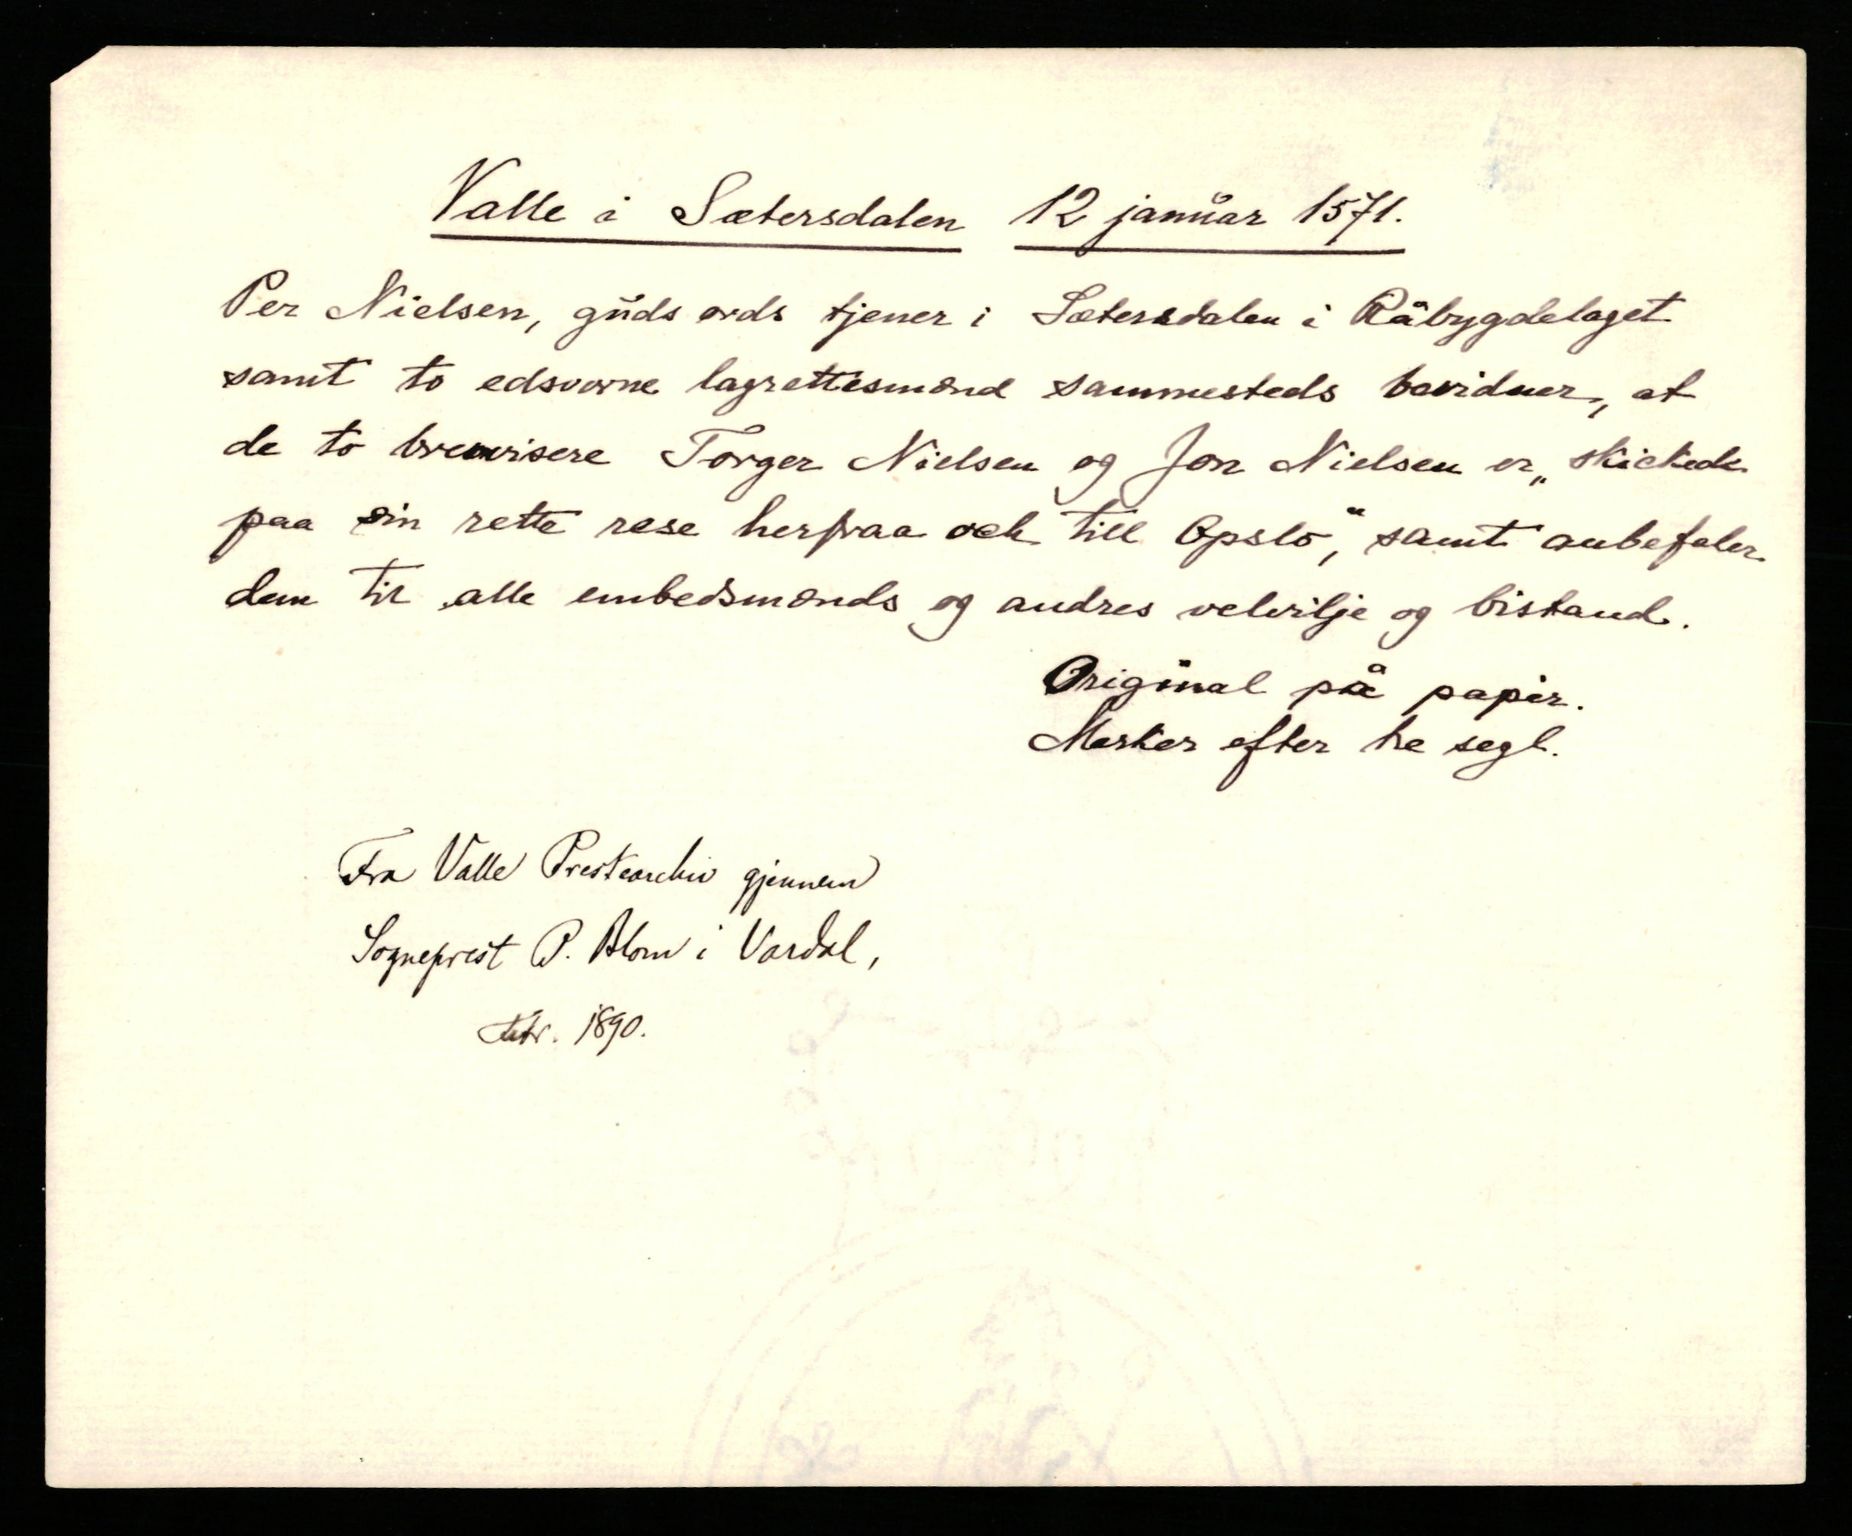 Valle i Sætersdalen 12 januar 1571.
Per Nielsen, guds ords tjener i Sætersdalen i Råbygdelaget
samt to edsvorne lagrettesmænd sammesteds bevidner, at
de to brevvisere Torger Nielsen og Jon Nielsen er „skickede
paa sin rette rese herfraa och till Opslo“, samt anbefaler
dem til alle embedsmænds og andres velvilje og bistand.
Original på papir.
Merker efter tre segl.
Fra Valle Prestearchiv gjennem
Sogneprest P. Blom i Vardal,
febr. 1890.